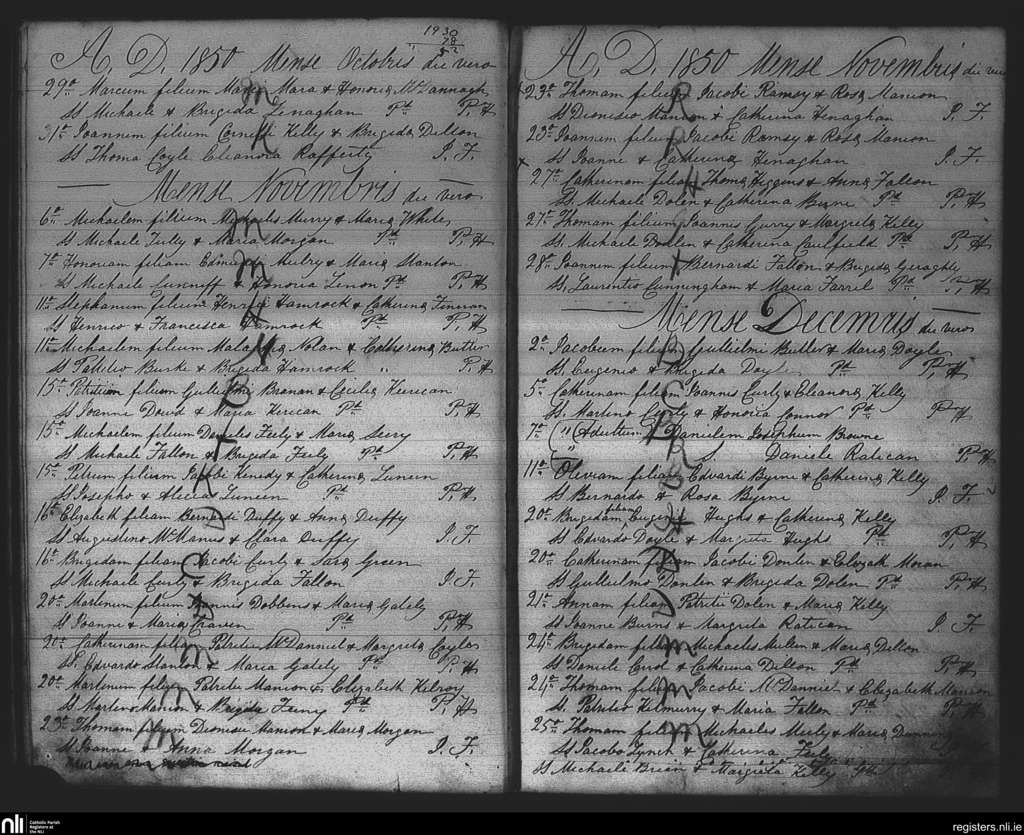 A. D. 1850 Mense Octobris die vero
1930
29ª Marcum filium Marci Mara & Honoria McDannagh
SS Michaele & Brigida Lenaghan Pᵗ P. H
31ª Joannem filium Cornelii Kelly & Brigida Dillon
SS Thoma Coyle Eleanora Rafferty J. F.
Mense Novembris die vero
6ª Michaelem filium Michaelis Murry & Maria White
SS Michaele Tully & Maria Morgan Pᵗ P. H
7ª Honoriam filiam Edmundi Mulry & Maria Stanton
SS Michaele Cunniff & Honoria Linon Pᵗ P. H
11ª Stephanum filium Henrici Hamrock & Catherina Finnan
SS Henrico & Francisca Hamrock Pᵗ P. H
11ª Michaelem filium Nolan & Catherina Butler
SS Patritio Burke & Brigida Hamrock " P. H
15ª filium Gulielmi Branan & Cecilia Kerican
SS Joanne Dowd & Maria Kerican Pᵗ P. H
15ª Michaelem filium Danielis Feely & Maria Seery
SS Michaele Fallon & Brigida Feely Pᵗ P. H
15ª Petrum filium Jacobi Kenedy & Catherina Luneen
SS Josepho & Alicia Luneen Pᵗ P. H
16ª Elizabeth filiam Bernardi Duffy & Anna Duffy
SS Augustino McManus & Clara Duffy J. F
16ª Brigidam filiam Jacobi Curly & Sara Green
SS Michaele Curly & Brigida Fallon J. F.
20ª Martinum filium Joannis Dobbens & Maria Gately
SS Joanne & Maria Craven Pᵗ P. H
20ª Catherinam filiam Patritii McDanniel & Margrita Coyle
SS. Edvardo Stanton & Maria Gately Pᵗ P. H
20ª Martinum filium Patritii Manion & Elizabeth Kilroy
SS Martino Manion & Brigida Feeny Pᵗ P. H
23ª Thomam filium Dionisii Manion & Maria Morgan
SS Joanne & Anna Morgan J. F.
A. D. 1850 Mense Novembris die vero
23ª Thomam filium Jacobi Ramsy & Rosa Manion
SS Dionisio Manion & Catherina Henaghan J. F.
23ª Joannem filium Jacobi Ramsy & Rosa Manion
SS Joanne & Catherina Henaghan J. F.
27ª Catherinam filiam Thoma Higgins & Anna Fallon
SS. Michaele Dolen & Catherina Byrne Pᵗ P. H
27ª Thomam filium Joannis Curry & Margrita Kelly
SS. Michaele Dolen & Catherina Caulfield Pᵗ P. H
28ª Joannem filium Bernardi Fallon & Brigida Geraghty
SS. Laurentio Cunningham & Maria Farrel Pᵗ P. H
Mense Decemris die vero
2ª Jacobum filium Gulielmi Butler & Maria Doyle
SS. Eugenio & Brigida Doyle Pᵗ P. H
5ª Catherinam filiam Joannis Curly & Eleanora Kelly
SS. Martino Curly & Honoria Connor Pᵗ P. H
7ª " Adultum Danielem Josephum Browne
" S Daniele Ratican P. H
11ª Oliviam filiam Edvardi Byrne & Catherina Kelly
SS Bernardo & Rosa Byrne J. F.
20ª Brigidam filiam Eugenii Hughs & Catherina Kelly
SS Edvardo Doyle & Margrita Hughs Pᵗ P. H
20ª Catherinam filiam Jacobi Donlen & Elizabeth Moran
SS Gulielmo Donlen & Brigida Dolen Pᵗ P. H
21ª Annam filiam Patritii Dolen & Maria Kelly
SS Joanne Burns & Margrita Ratican J. F.
24ª Brigidam filiam Michaelis Mulen & Maria Dillon
SS Daniele Carrol & Catherina Dillon Pᵗ P. H
24ª Thomam filium Jacobi McDanniel & Elizabeth Manion
SS. Patritio Kilmurry & Maria Fallon Pᵗ P. H
25ª Thomam filium Michaelis Merly & Maria Dunning
SS Jacobo Lynch & Catherina Feely
SS Michaele Brien & Margrita Kelly Pᵗ
nli Catholic Parish Registers at the NLI
registers.nli.ie